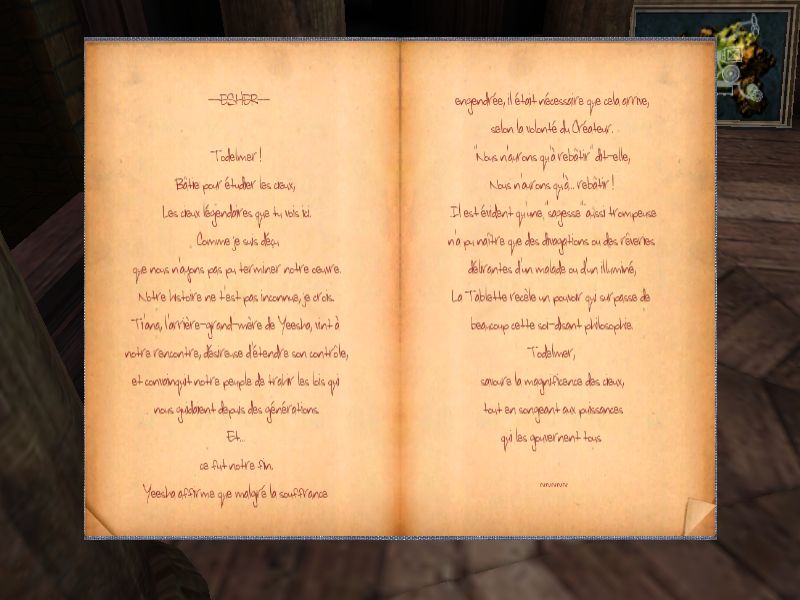 ESHER
Todelmer !
Bâtie pour étudier les cieux,
Les cieux légendaires que tu vois ici.
Comme je suis déçu
que nous n'ayons pas pu terminer notre œuvre.
Notre histoire ne t'est pas inconnue, je crois.
Ti'ana, l'arrière-grand-mère de Yeesha, vint à
notre rencontre, désireuse d'étendre son contrôle,
et convainquit notre peuple de trahir les lois qui
nous guidaient depuis des générations.
Et...
ce fut notre fin.
Yeesha affirme que malgré la souffrance
engendrée, il était nécessaire que cela arrive,
selon la volonté du Créateur.
"Nous n'aurons qu'à rebâtir" dit-elle,
Nous n'aurons qu'à... rebâtir !
Il est évident qu'une "sagesse" aussi trompeuse
n'a pu naître que des divagations ou des rêveries
délirantes d'un malade ou d'un illuminé,
La Tablette recèle un pouvoir qui surpasse de
beaucoup cette soi-disant philosophie.
Todelmer,
savoure la magnificence des cieux,
tout en songeant aux puissances
qui les gouvernent tous